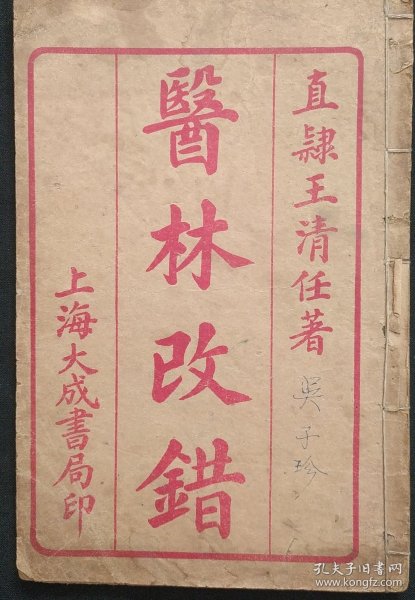 直隸王清任著
吳子珍
醫林改錯
上海大成書局印
孔夫子旧书网
www.kongfz.com